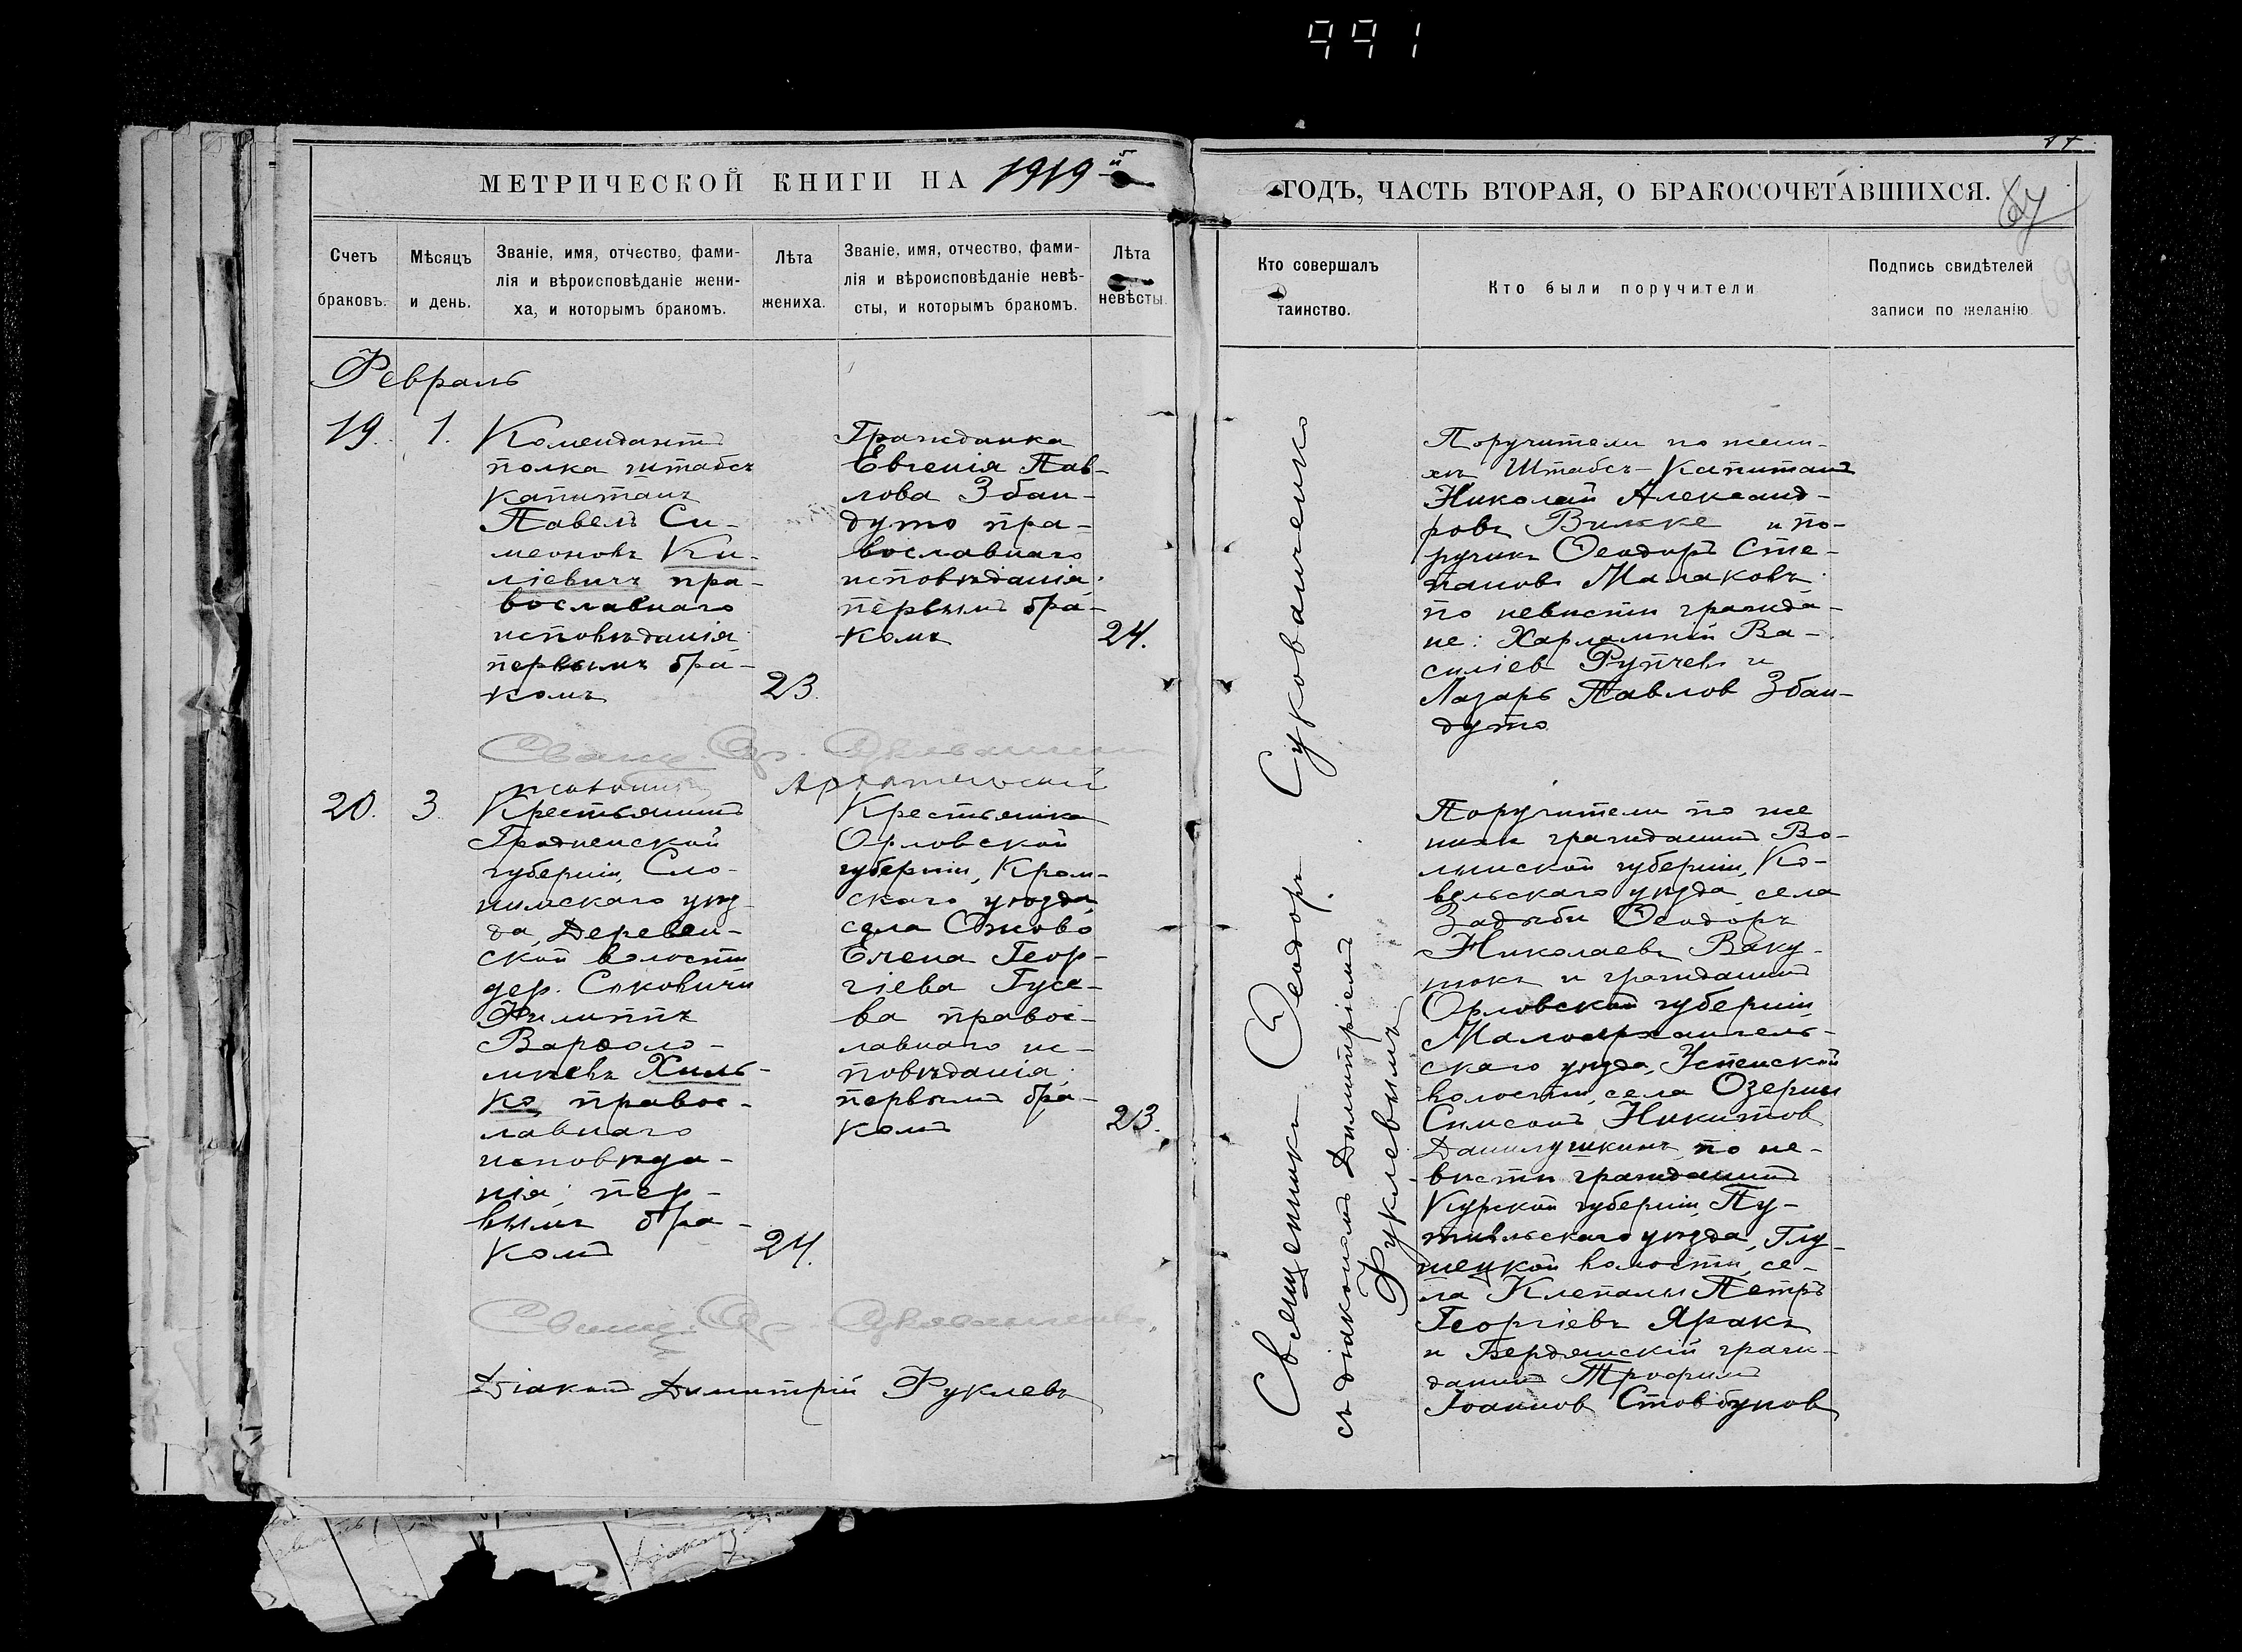 991
МЕТРИЧЕСКОЙ КНИГИ НА 1919й
ГОДЪ, ЧАСТЬ ВТОРАЯ, О БРАКОСОЧЕТАВШИХСЯ.
Счетъ
браковъ.
Мѣсяцъ
и день.
Званіе, имя, отчество, фами-
лія и вѣроисповѣданіе жени-
ха, и которымъ бракомъ.
Лѣта
жениха.
Званіе, имя, отчество, фами-
лія и вѣроисповѣданіе невѣ-
сты, и которымъ бракомъ.
Лѣта
невѣсты.
Кто совершалъ
таинство.
Кто были поручители
Подпись свидѣтелей
записи по желанію
Февраль
19. 1.
Комендантъ
полка штабсъ
капитанъ
Павелъ Си-
меоновъ Ки-
ліевичъ пра-
вославнаго
исповѣданія
первымъ бра-
комъ
23.
Гражданка
Евгенія Пав-
лова Збан-
дуто пра-
вославнаго
исповѣданія.
первымъ бра-
комъ
24.
Поручители по жени-
хѣ Штабсъ-Капитанъ
Николай Александ-
ровъ Вилке и по-
ручикъ Ѳеодоръ Сте-
панов Малаковъ.
по невѣсти гражда-
не: Харлампій Ва-
силіев Рупчевъ и
Лазарь Павлов Збан-
дуто
20. 3.
Крестьянинъ
Гродненской
губерніи, Сло-
нимскаго уѣз-
да, Деревен-
ской волости
дер. Соковичи
Филиппъ
Варѳоло-
мѣевъ Хиль-
ко, правос-
лавнаго
исповѣда-
нія; пер-
вымъ бра-
комъ
24.
Крестьянка
Орловской
губерніи, Кром-
скаго уѣзда,
села
Елена Геор-
гіева Гусе-
ва правос-
лавнаго ис-
повѣданія;
первымъ бра-
комъ
23.
Священникъ Ѳеодоръ Сукованченко
съ діакономъ Димитріемъ
Фуклевымъ
Поручители по же
нихѣ гражданинъ Во-
лынской губерніи, Ко-
вельскаго уѣзда, села
Задыби Ѳеодоръ
Николаевъ Ваку-
люкъ и гражданинъ
Орловской губерніи
Малоархангель-
скаго уѣзда, Успенской
волости, села Озерны
Симеонъ Никитов
Данилушкинъ, по не-
вѣсти гражданинъ
Курской губерніи, Пу-
тивльскаго уѣзда, Глу-
шецкой волости, се-
ла Клепалы Петръ
Георгіевъ Яракъ
и Бердянскій граж-
данин Трофимъ
Іоаннов Стовбунов
Діаконъ Димитрій Фуклевъ